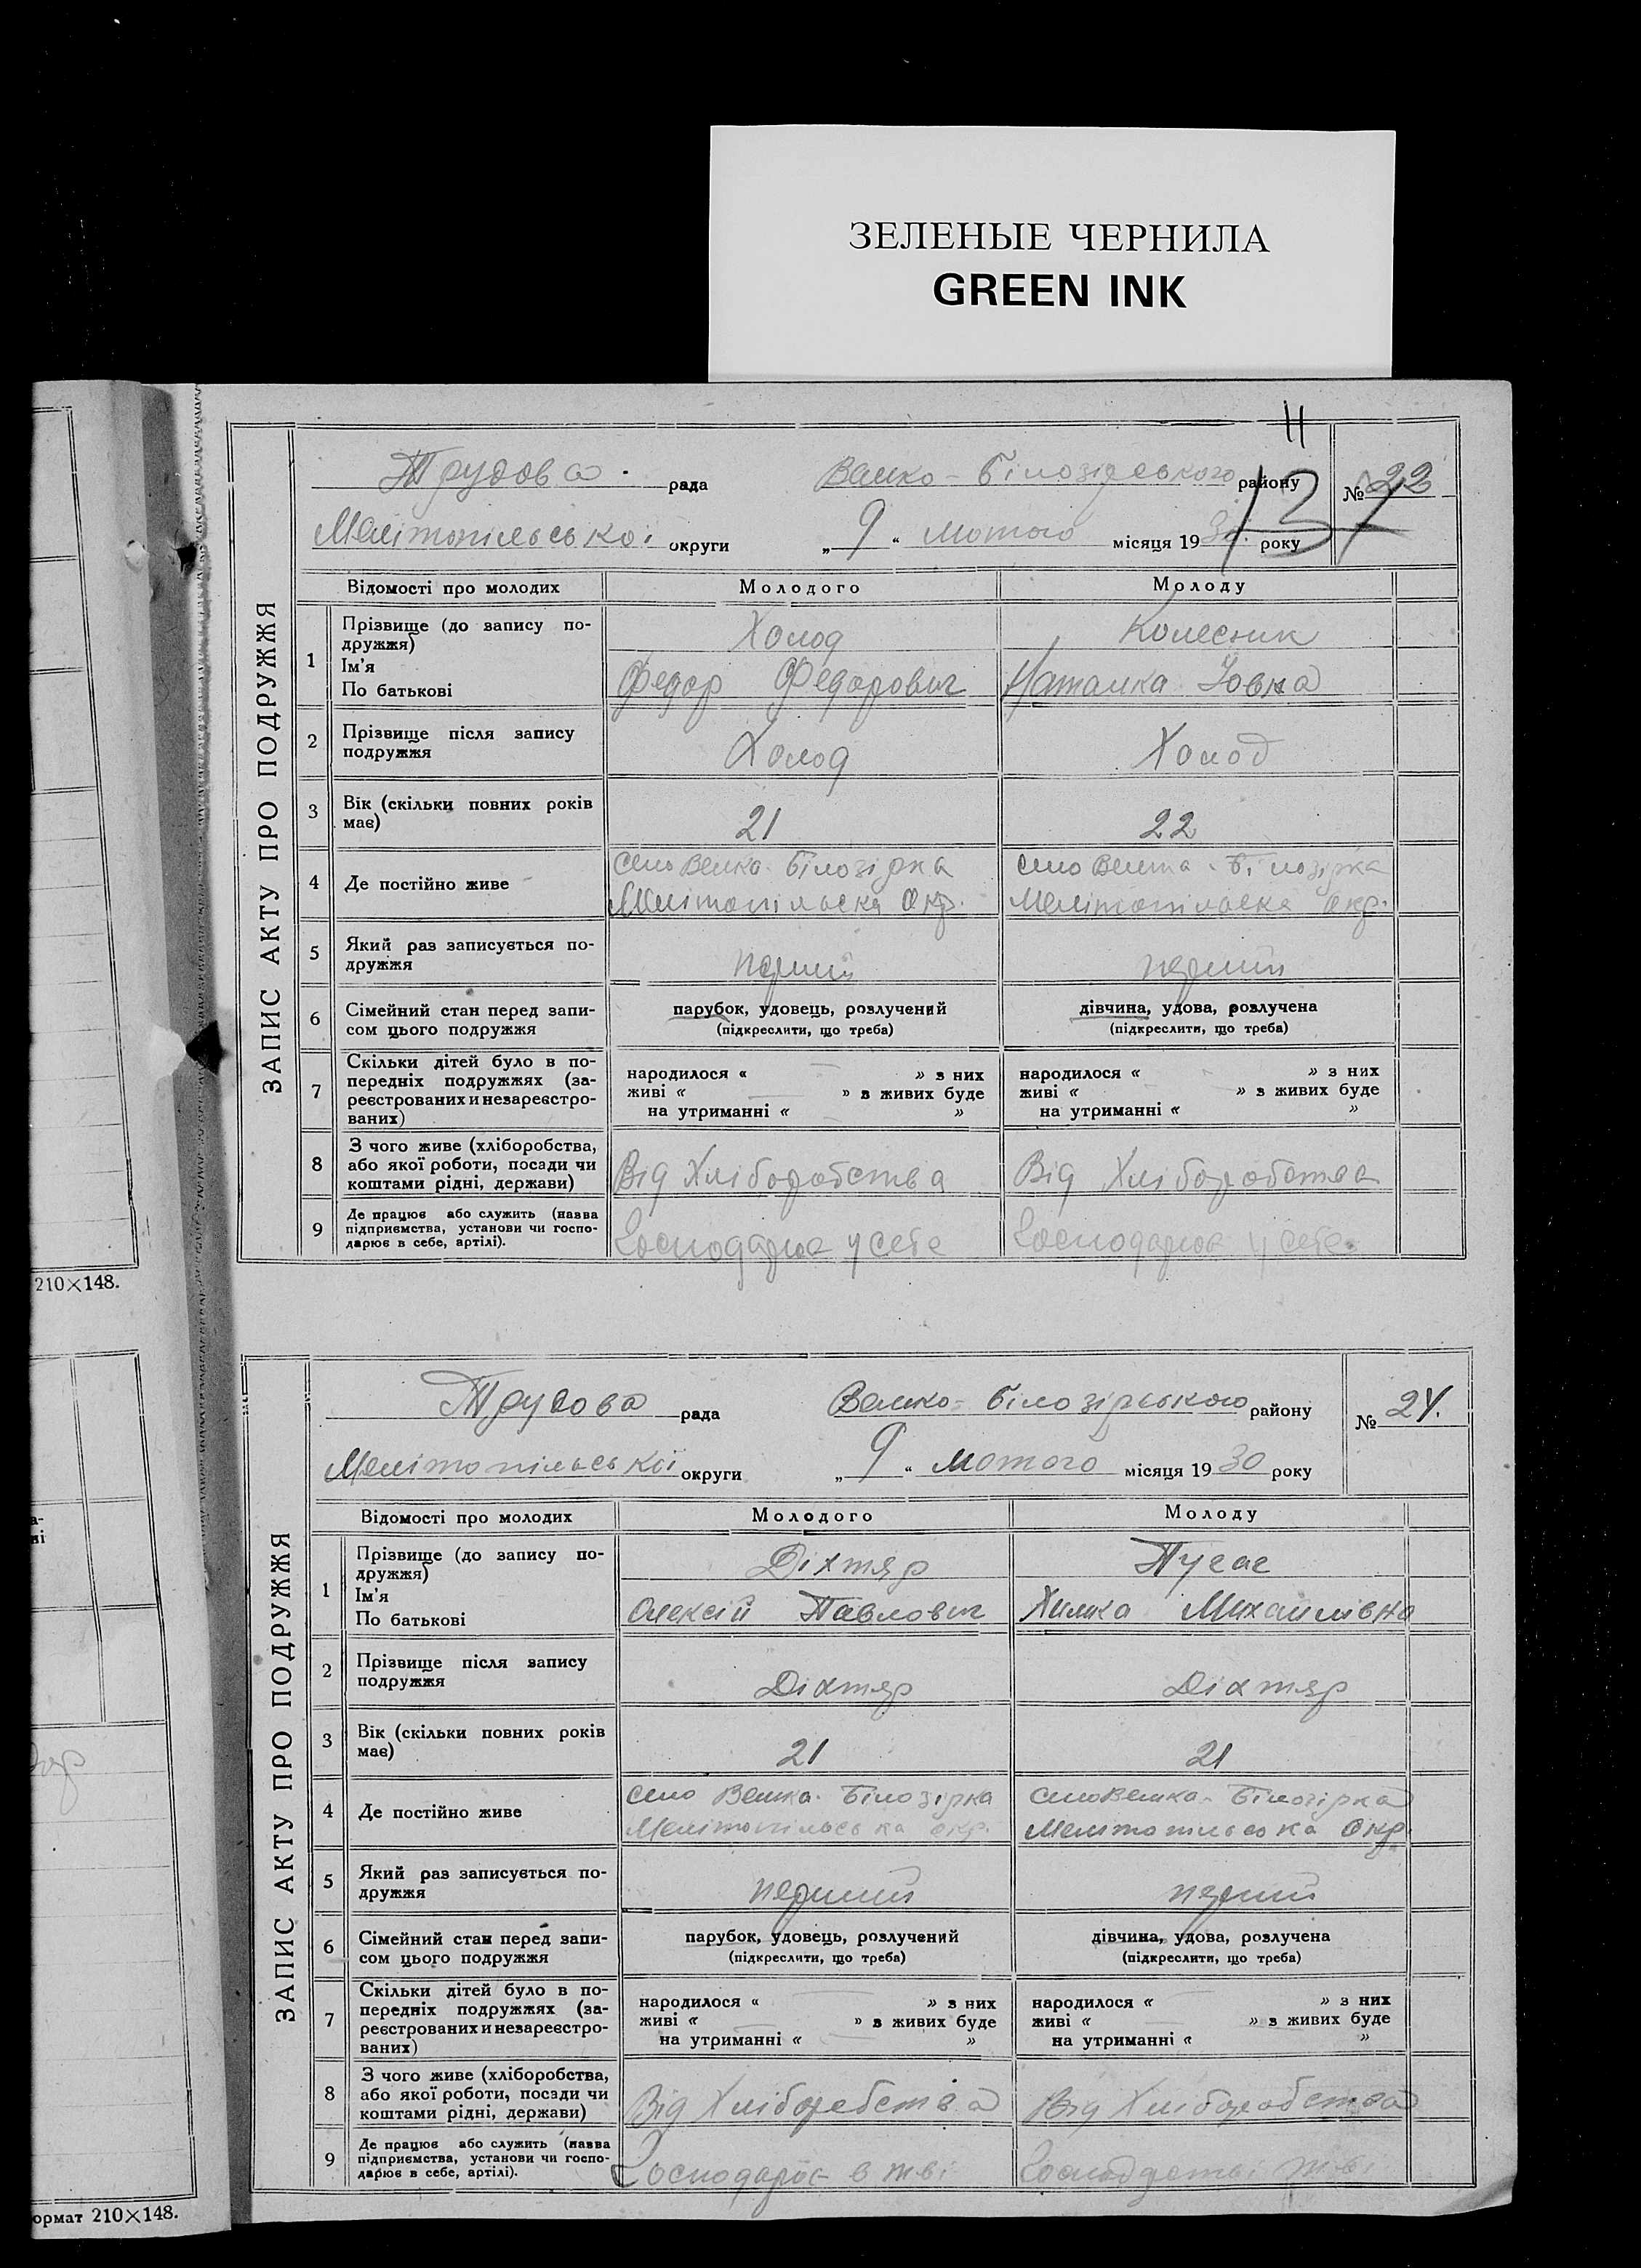 ЗЕЛЕНЫЕ ЧЕРНИЛА
GREEN INK
11
Трудова рада Велико-Білозірського району № 22
137
Мелітопільської округи „9“ лютого місяця 1930 року
ЗАПИС АКТУ ПРО ПОДРУЖЖЯ
Відомості про молодих Молодого Молоду
1 Прізвище (до запису по-
дружжя) Холод Колесник
Ім'я
По батькові Федор Федорович Наталка Іовна
2 Прізвище після запису
подружжя Холод Холод
3 Вік (скільки повних років
має) 21 22
4 Де постійно живе село Велика-Білозірка село Велика-Білозірка
Мелітопільска Окр. Мелітопільска Окр.
5 Який раз записується по-
дружжя перший перший
6 Сімейний стан перед запи- парубок, удовець, розлучений дівчина, удова, розлучена
сом цього подружжя (підкреслити, що треба) (підкреслити, що треба)
7 Скільки дітей було в по-
передніх подружжях (за- народилося « » з них народилося « » з них
реєстрованих и незареєстро- живі « » з живих буде живі « » з живих буде
ваних) на утриманні « » на утриманні « »
8 З чого живе (хліборобства,
або якої роботи, посади чи
коштами рідні, держави) Від Хліборобства Від Хліборобства
9 Де працює або служить (назва
підприємства, установи чи госпо-
дарює в себе, артілі). Господарює у себе Господарює у себе.
210×148.
Трудова рада Велико-Білозірського району № 24.
Мелітопільської округи „9“ лютого місяця 1930 року
ЗАПИС АКТУ ПРО ПОДРУЖЖЯ
Відомості про молодих Молодого Молоду
1 Прізвище (до запису по-
дружжя) Діхтяр
Ім'я
По батькові Олексій Павлович Химка Михайлівна
2 Прізвище після запису
подружжя Діхтяр Діхтяр
3 Вік (скільки повних років
має) 21 21
4 Де постійно живе село Велика-Білозірка село Велика-Білозірка
Мелітопільська окр. Мелітопільська Окр.
5 Який раз записується по-
дружжя перший перший
6 Сімейний стан перед запи- парубок, удовець, розлучений дівчина, удова, розлучена
сом цього подружжя (підкреслити, що треба) (підкреслити, що треба)
7 Скільки дітей було в по-
передніх подружжях (за- народилося « » з них народилося « » з них
реєстрованих и незареєстро- живі « » з живих буде живі « » з живих буде
ваних) на утриманні « » на утриманні « »
8 З чого живе (хліборобства,
або якої роботи, посади чи
коштами рідні, держави) Від Хліборобства Від Хліборобства
9 Де працює або служить (назва
підприємства, установи чи госпо-
дарює в себе, артілі). Господарює в
ормат 210×148.